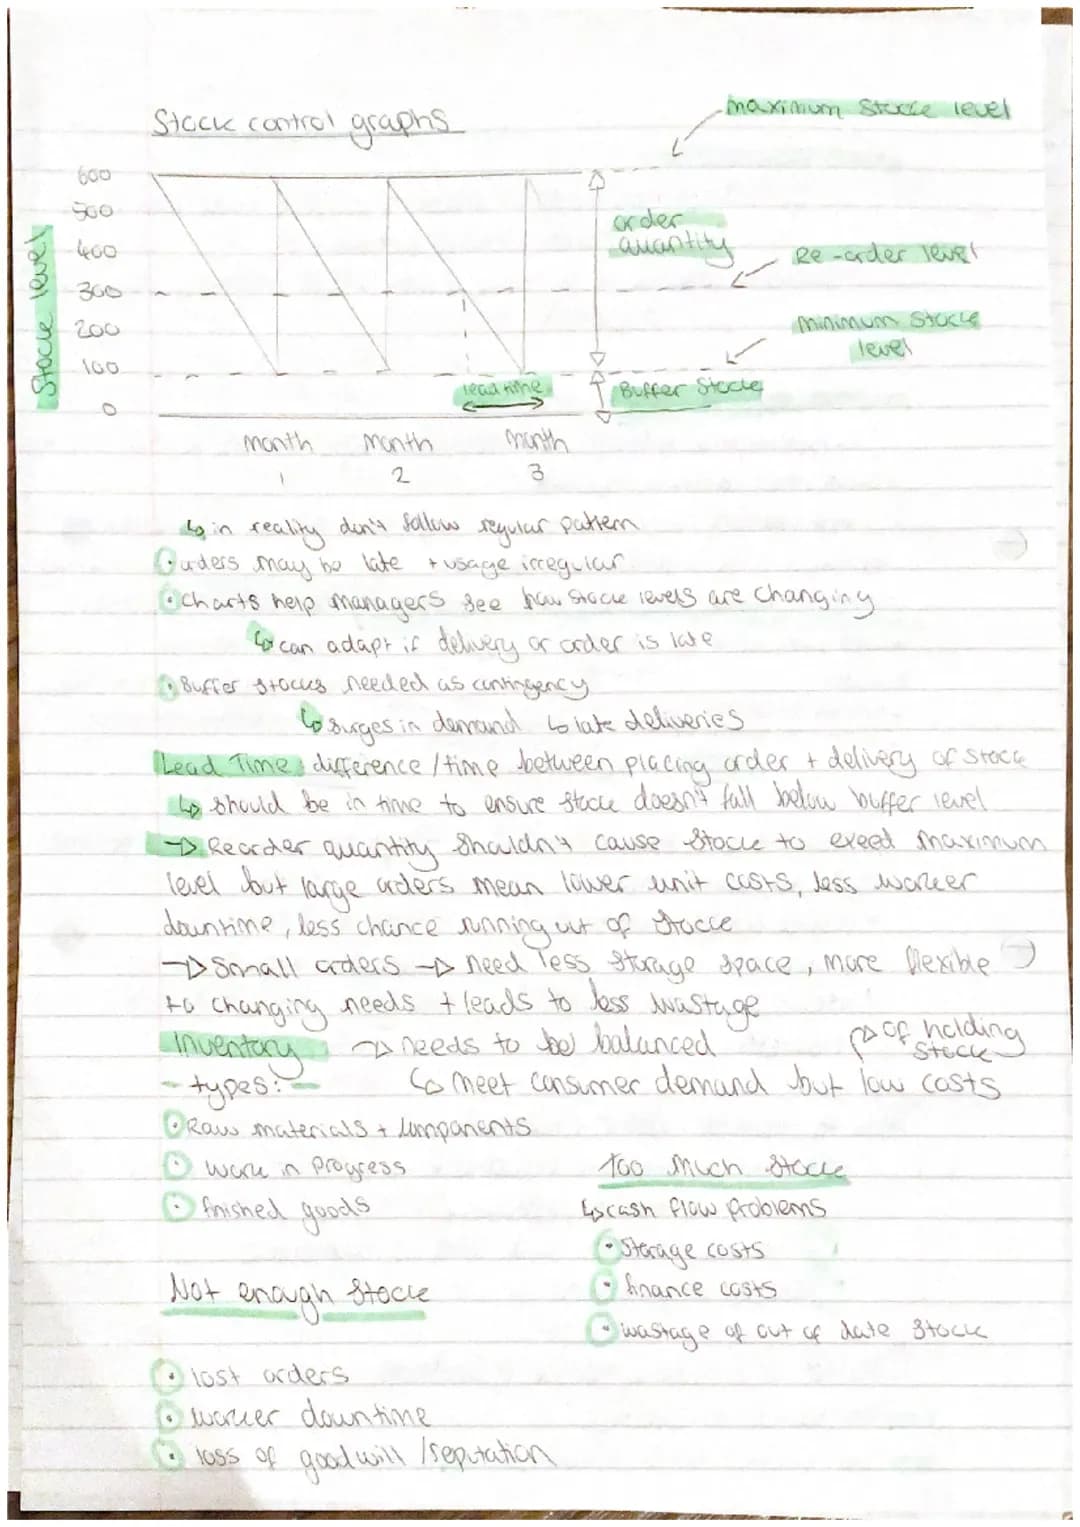 Stock control graphs
maximum stock level
600
500
400
300
200
100
0
Stock level
order
quantity
Re-order level
minimum stock
level
lead time
Buffer stock
month month month
1 2 3
↳ in reality don't follow regular pattern
• orders may be late + usage irregular
• charts help managers see how stock levels are changing
↳ can adapt if delivery or order is late
• Buffer stocks needed as contingency
↳ surges in demand ↳ late deliveries
Lead Time: difference/time between placing order + delivery of stock
↳ should be in time to ensure stock doesn't fall below buffer level
→ Reorder quantity shouldn't cause stock to exeed maximum
level but large orders mean lower unit costs, less worker
downtime, less chance running out of stock
→ Small orders → need less storage space, more flexible
to changing needs + leads to less wastage
Inventory → needs to be balanced
→ of holding
stock
- types: - ↳ meet consumer demand but low costs
• Raw materials + components
• work in progress
• finished goods
Too much stock
↳ cash flow problems
• Storage costs
• finance costs
• wastage of out of date stock
Not enough stock
• lost orders
• worker downtime
• loss of goodwill/reputation